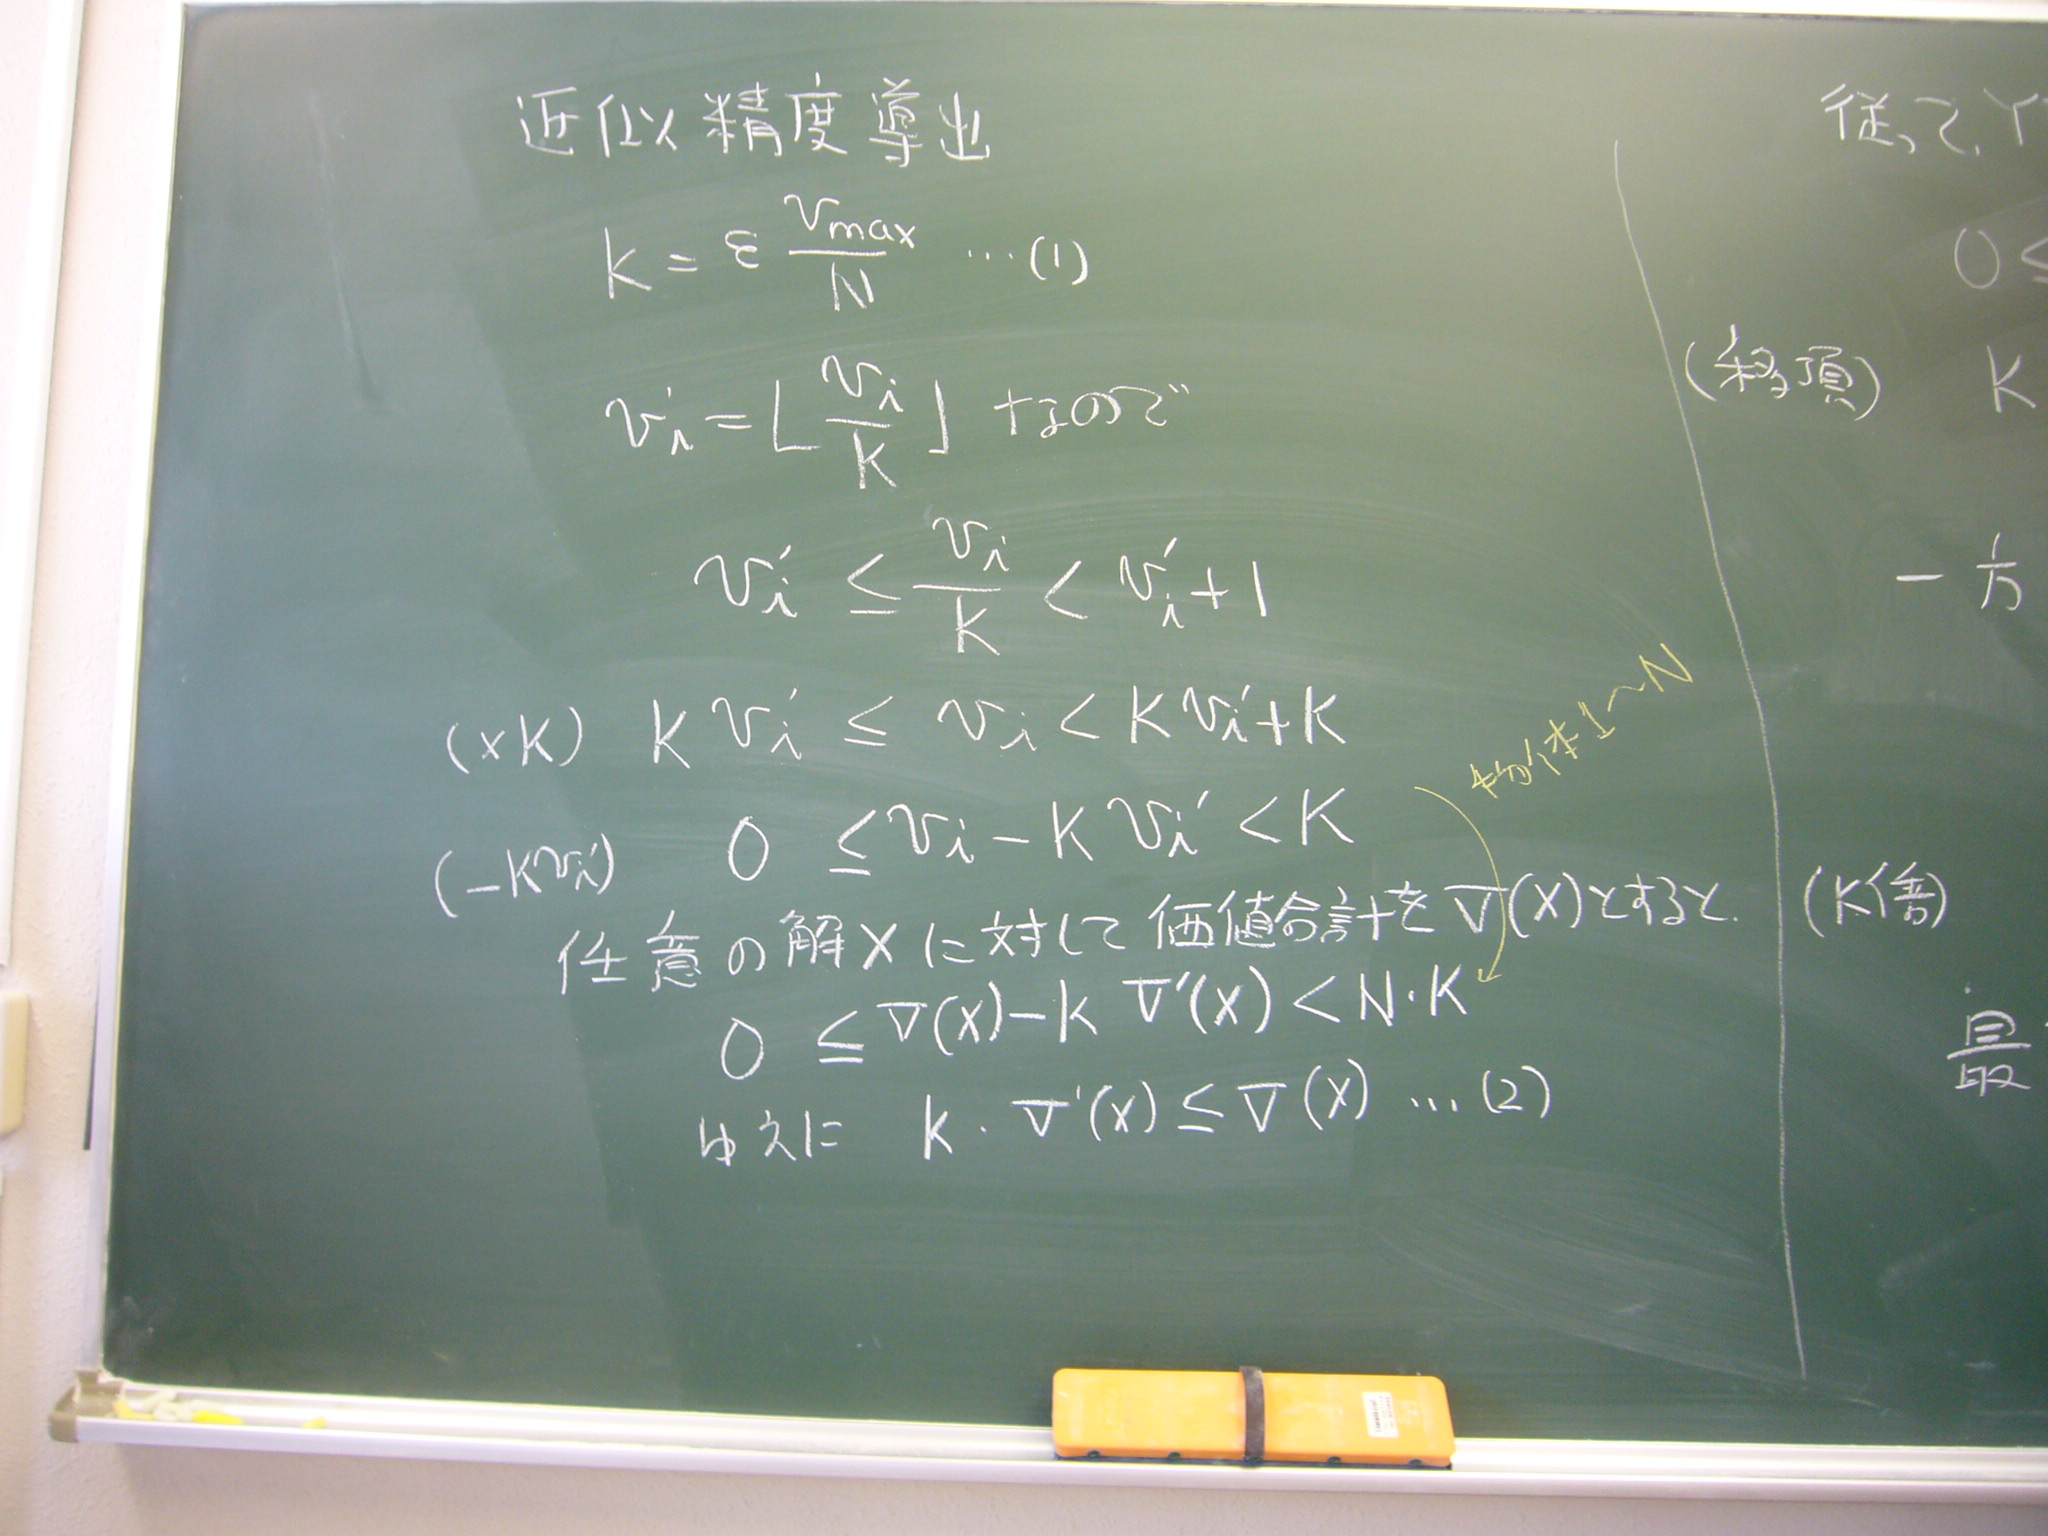 近似精度導出
K = ε Vmax/N …(1)
vi' = ⌊vi/K⌋ なので
vi' ≤ vi/K < vi' + 1
(×K) K vi' ≤ vi < K vi' + K
物体1〜N
(-Kvi') 0 ≤ vi - K vi' < K
任意の解Xに対して価値合計をV(X)とすると、
0 ≤ V(X) - K V'(X) < N・K
ゆえに K・V'(X) ≤ V(X) …(2)
従って、
0 ≤
(移項) K
一方
(K倍)
最